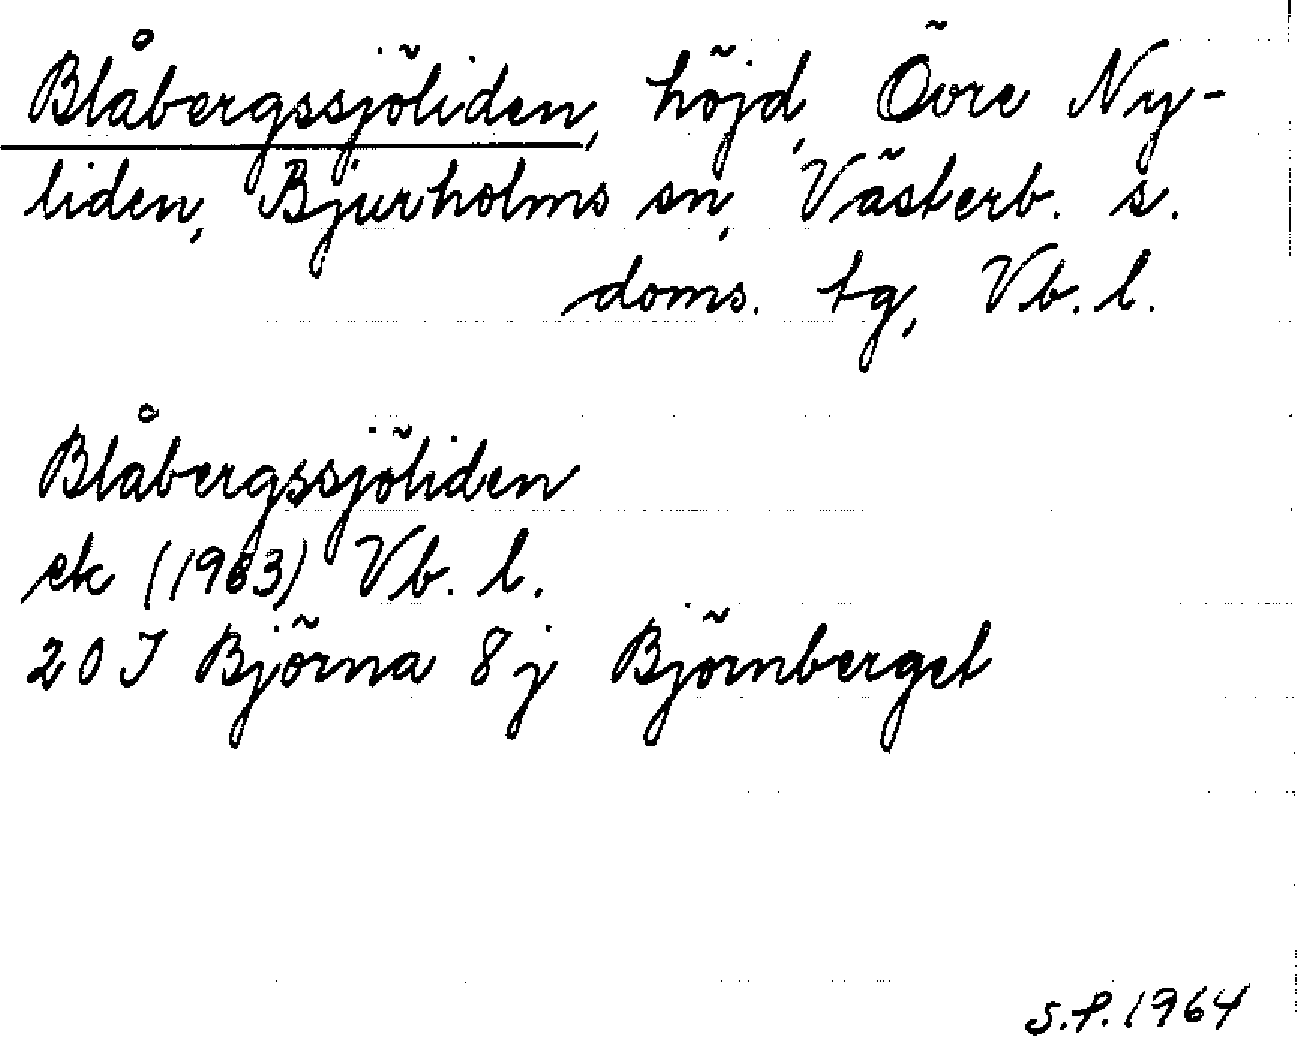 Blåbergssjöliden, höjd, Övre Ny-
liden, Bjurholms sn, Västerb. s.
doms. tg, Vb. l.
Blåbergssjöliden
ek (1963) Vb. l.
20 I Björna 8 j Björnberget
S.P. 1964